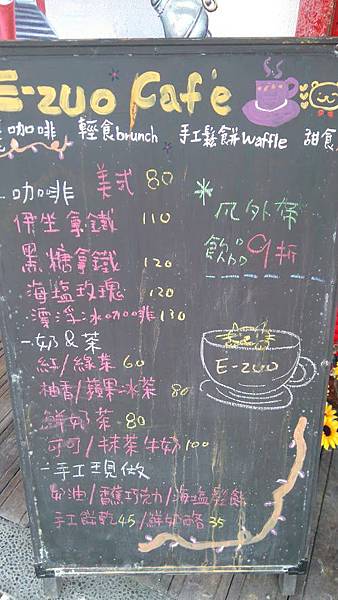 E-zuo Café
咖啡 輕食brunch 手工鬆餅waffle 甜食
咖啡 美式 80
伊坐拿鐵 110
黑糖拿鐵 120
海塩玫瑰 120
漂浮冰咖啡 130
奶&茶
紅/綠茶 60
柚香/蘋果冰茶 80
鮮奶茶 80
可可/抹茶牛奶 100
手工現做
奶油/香蕉巧克力/海塩鬆餅
手工餅乾45/鮮奶酪35
*凡外帶
飲品9折
E-zuo